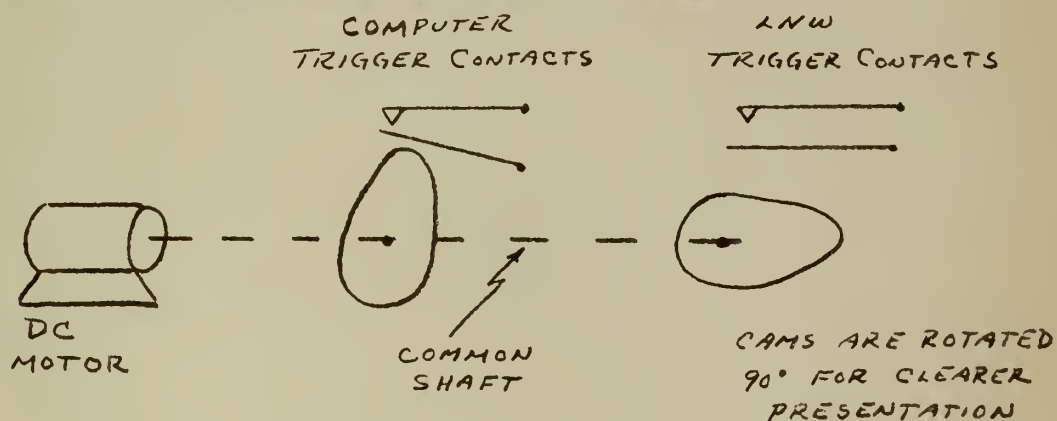 COMPUTER
TRIGGER CONTACTS
LNW
TRIGGER CONTACTS
DC
MOTOR
COMMON
SHAFT
CAMS ARE ROTATED
90° FOR CLEARER
PRESENTATION